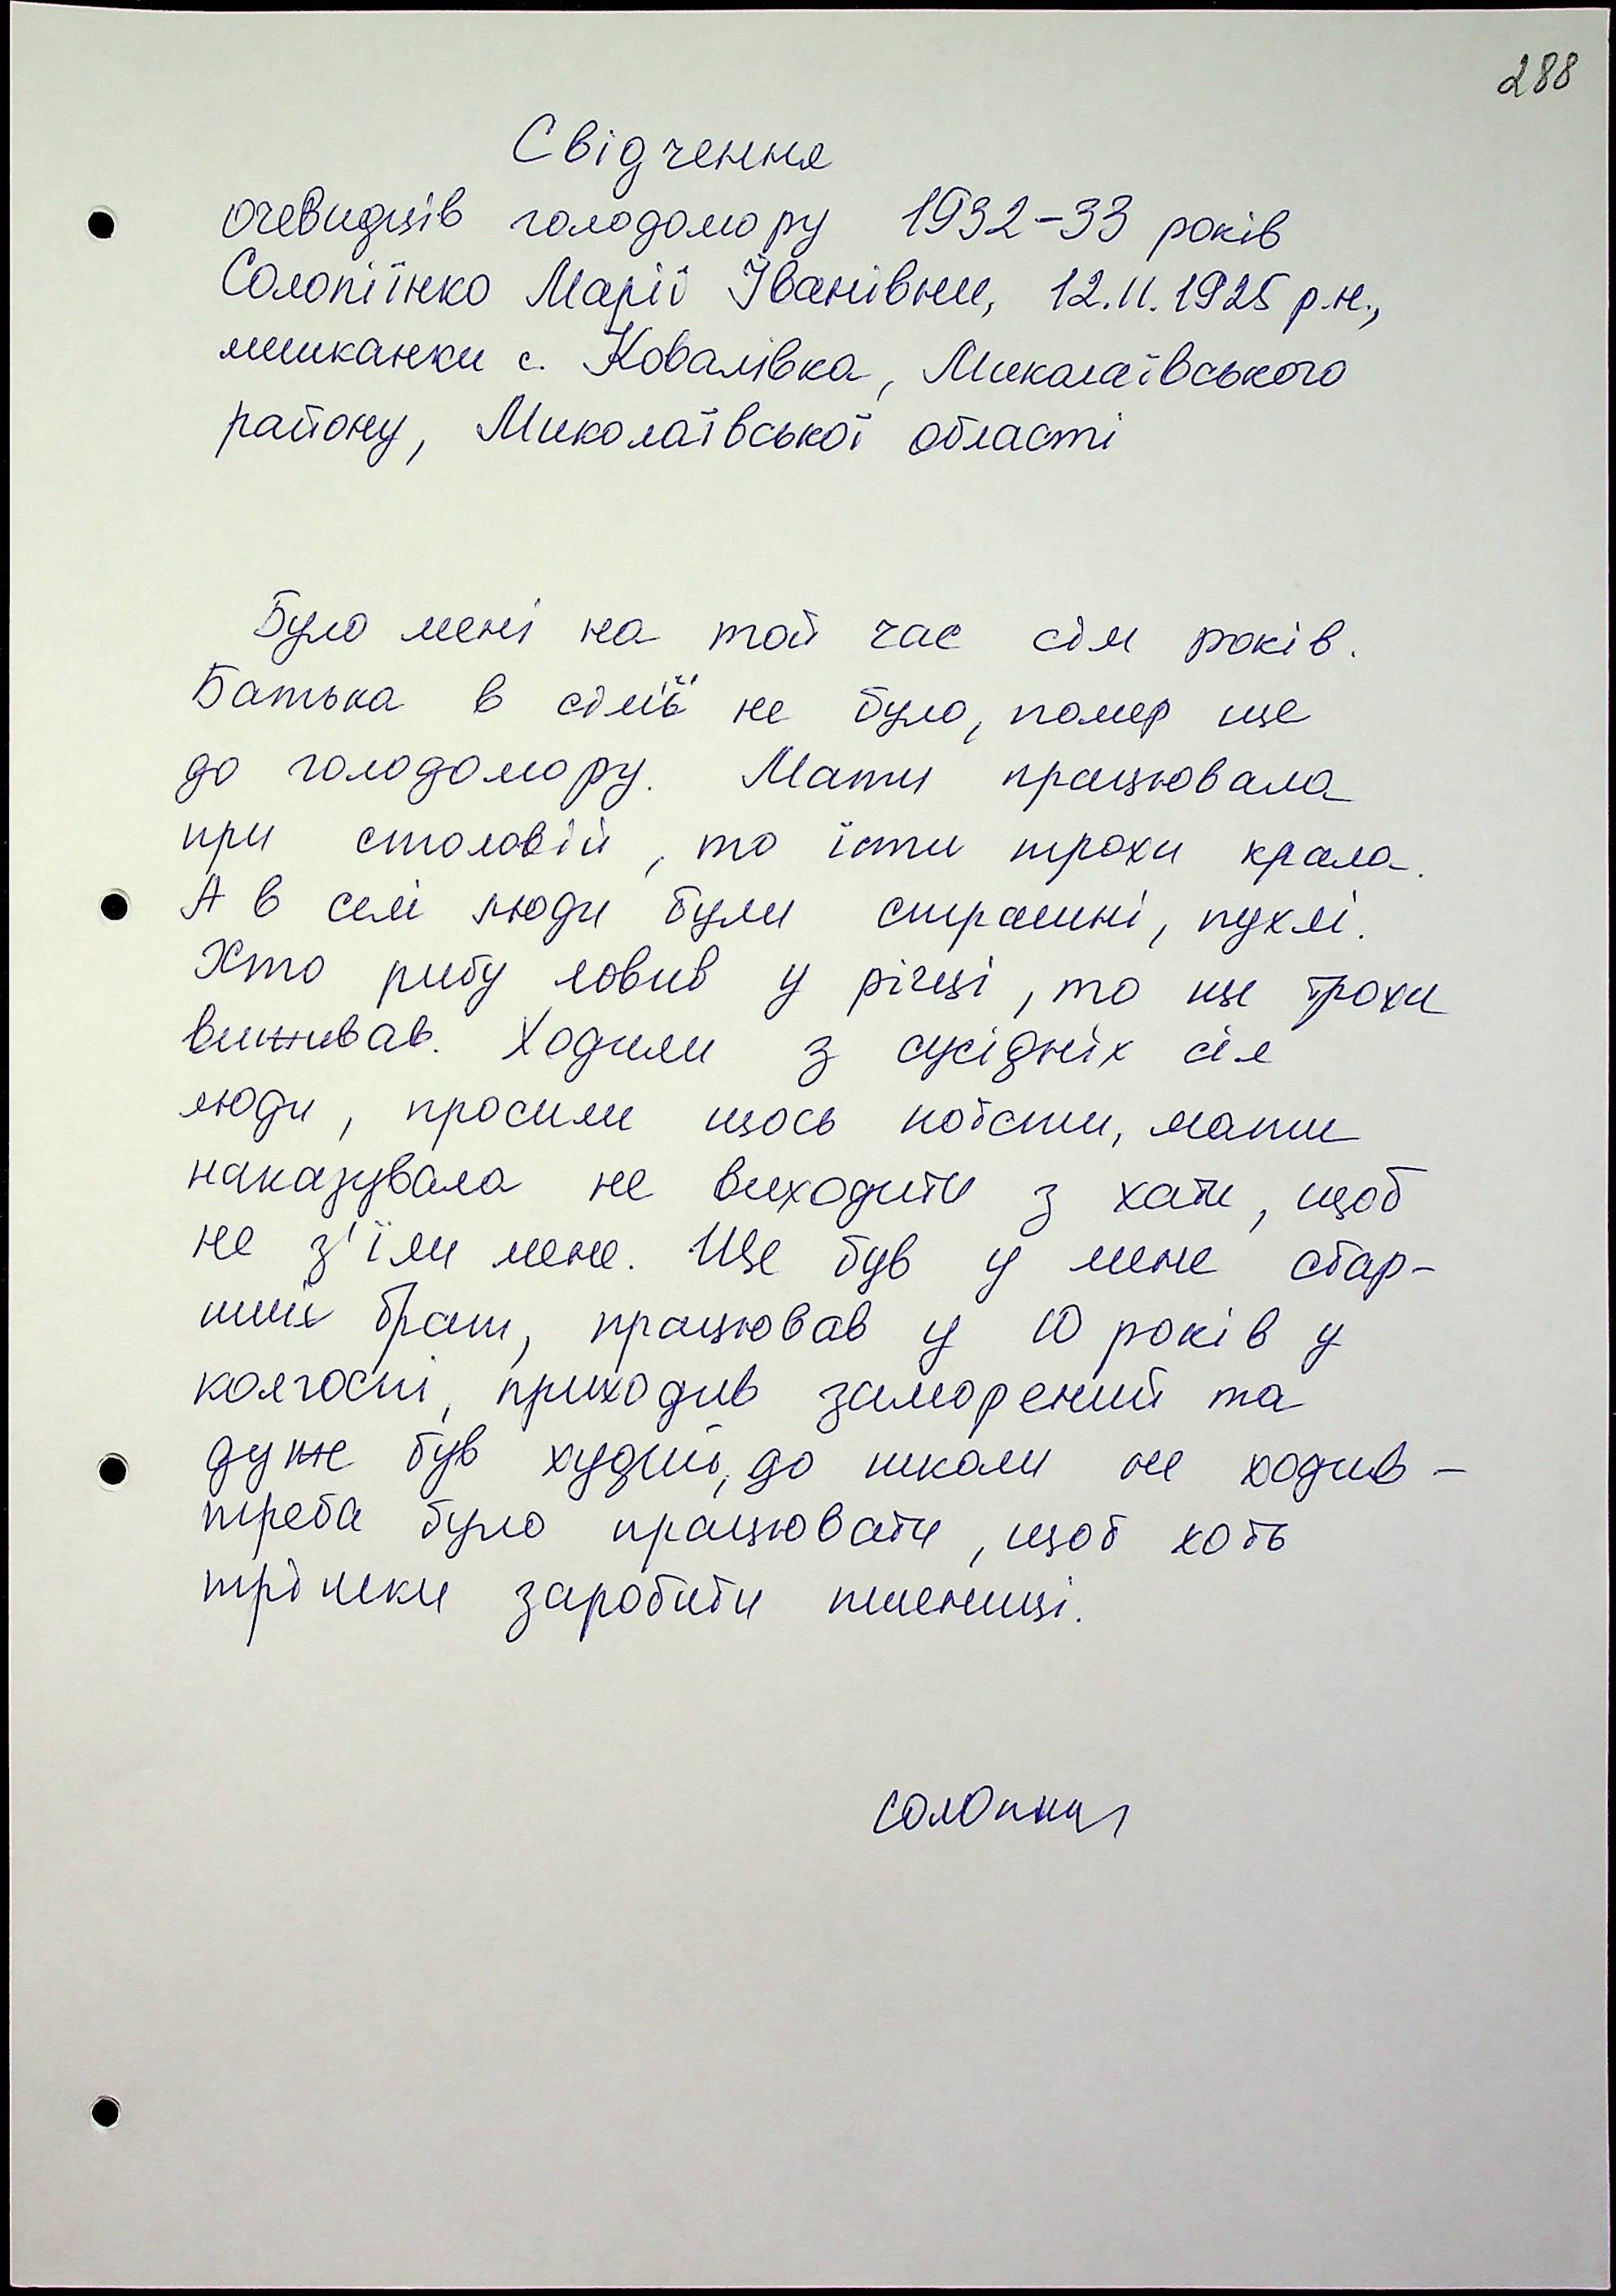 288
Свідчення
очевидців голодомору 1932-33 років
Солопіїнко Марії Іванівни, 12.11.1925 р.н.,
мешканки с. Ковалівка, Миколаївського
району, Миколаївської області
Було мені на той час сім років.
Батька в сім'ї не було, помер ще
до голодомору. Мати працювала
при столовій, то їсти трохи крала.
А в селі люди були страшні, пухлі.
Хто рибу ловив у річці, то ще трохи
виживав. Ходили з сусідніх сіл
люди, просили щось поїсти, мати
наказувала не виходити з хати, щоб
не з'їли мене. Ще був у мене стар-
ший брат, працював у 10 років у
колгоспі, приходив заморений та
дуже був худий, до школи не ходив -
треба було працювати, щоб хоть
трішки заробити пшениці.